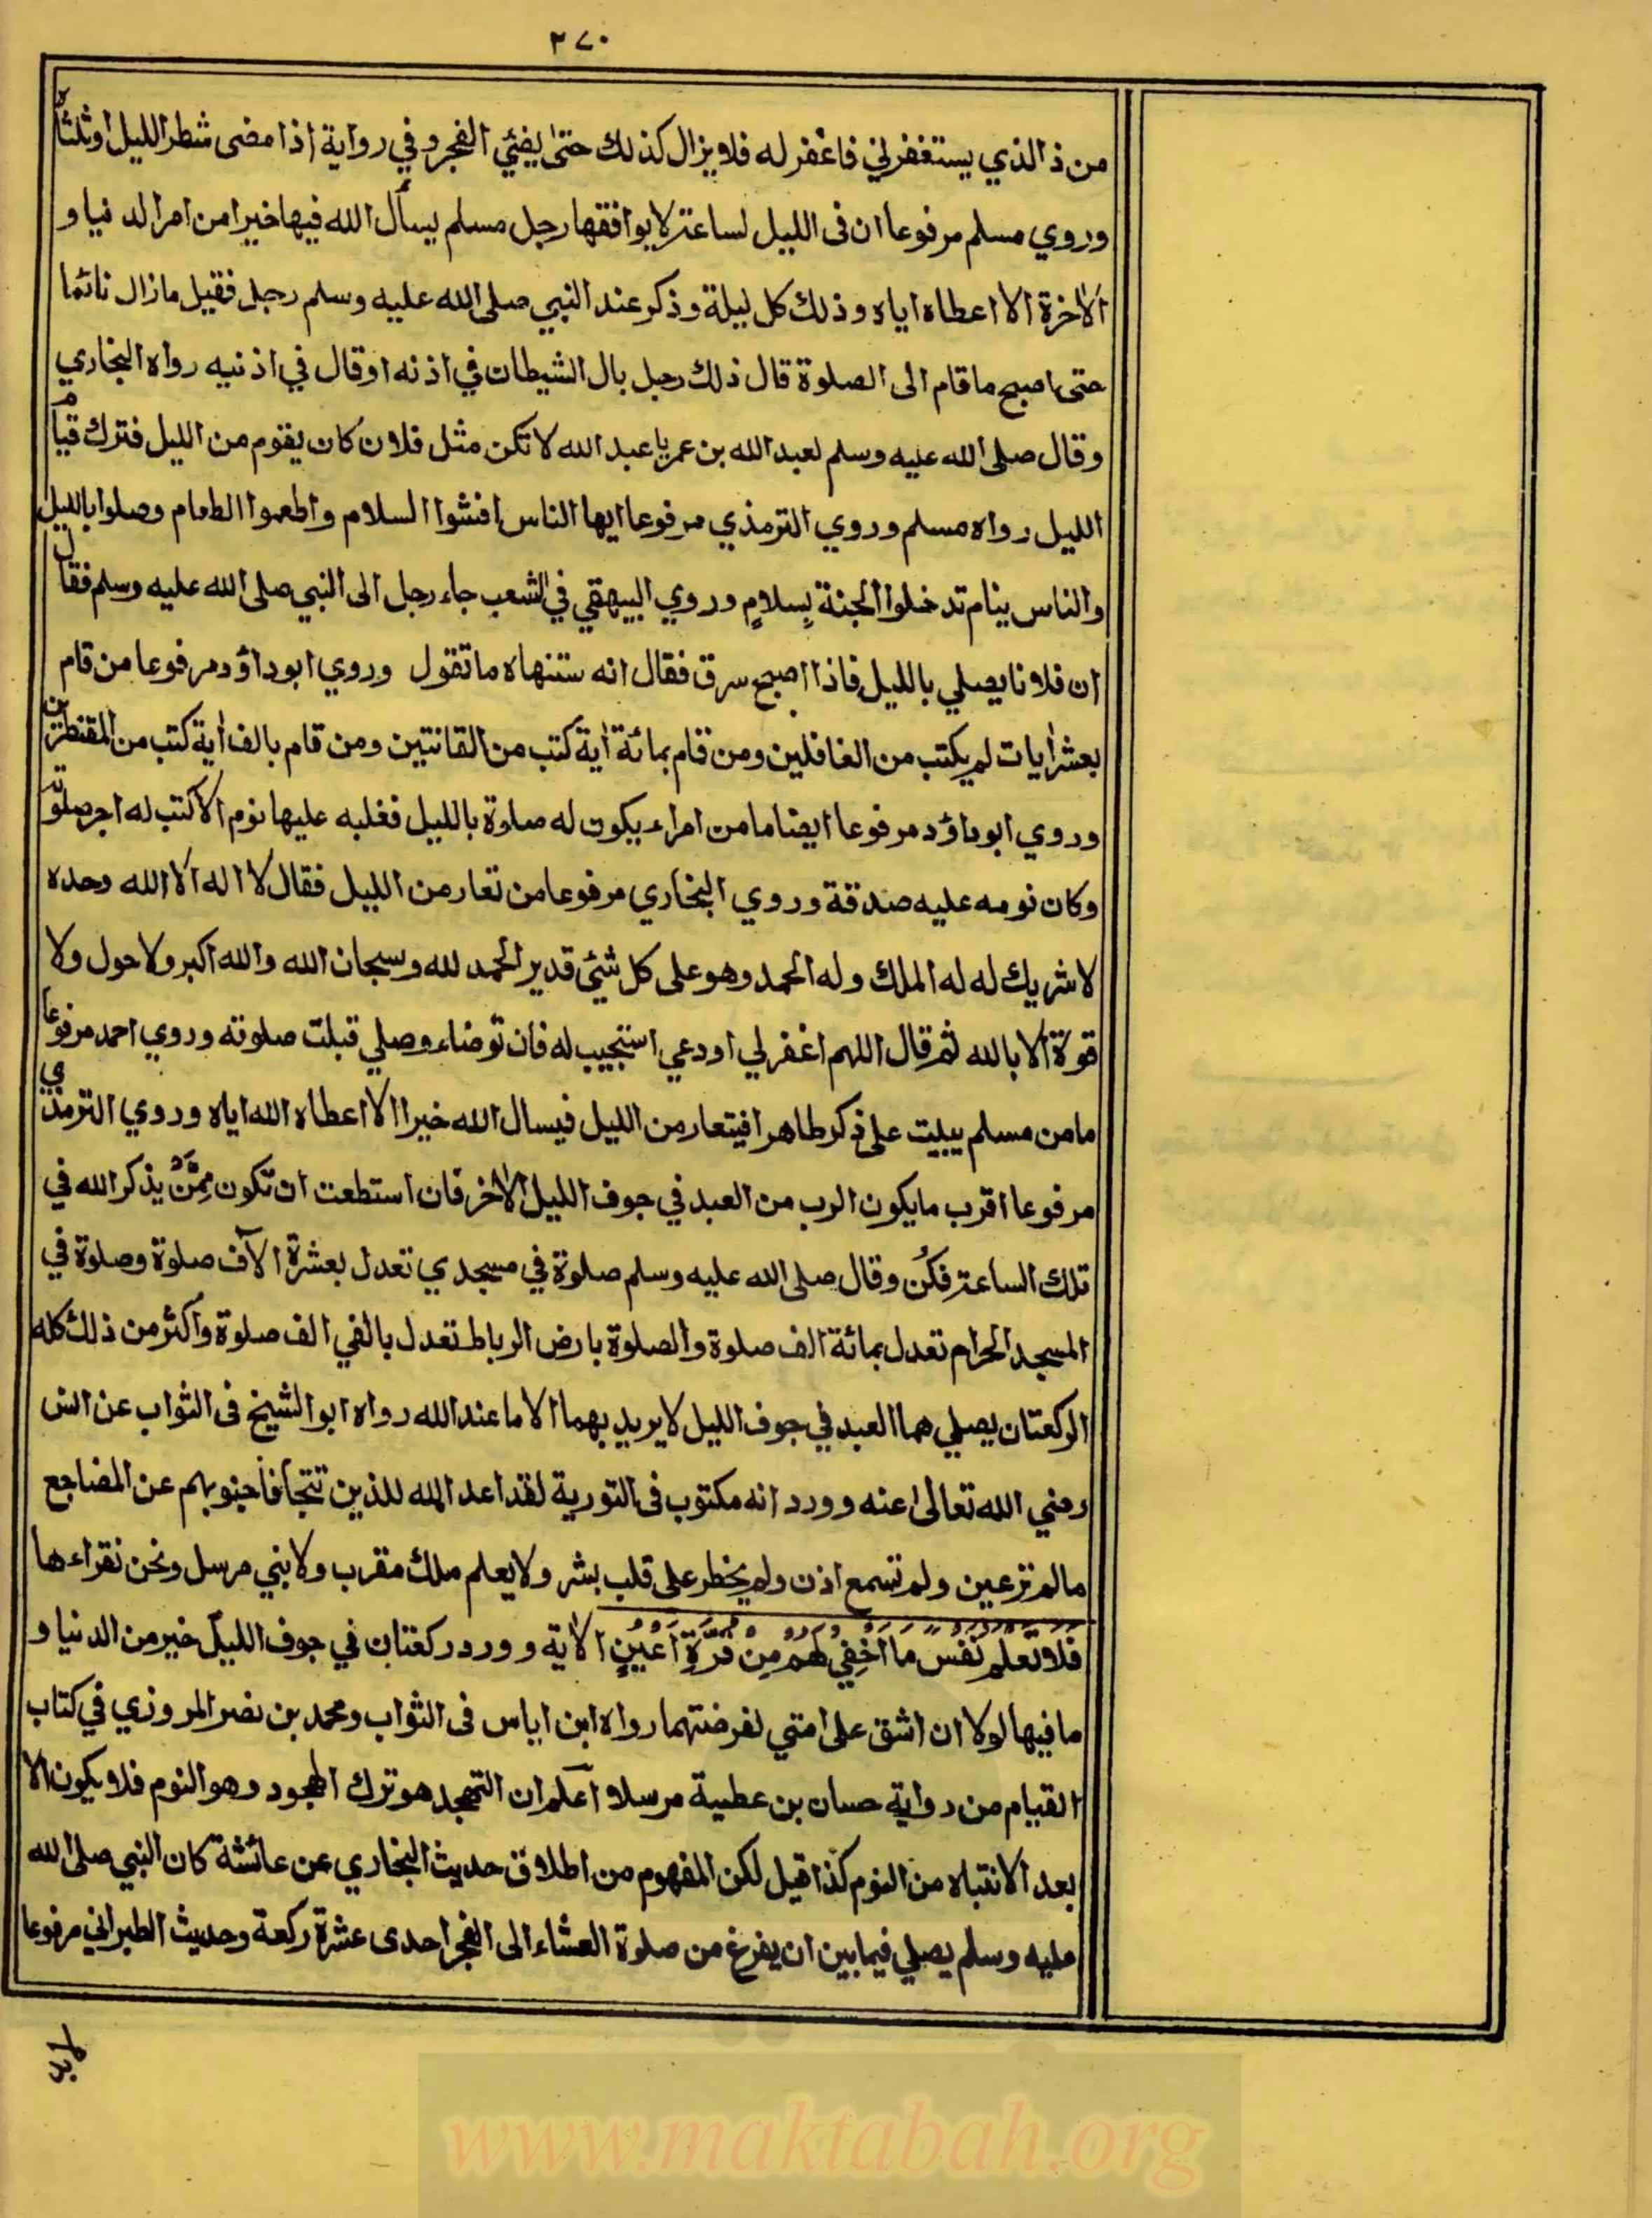 ٢٧٠
من ذا الذي يستغفرني فاغفر له فلا يزال كذلك حتى يضئي الفجر وفي رواية اذا مضى شطر الليل او ثلثاه
وروي مسلم مرفوعا ان فى الليل لساعة لا يوافقها رجل مسلم يسأل الله فيها خيرا من امر الدنيا و
الاٰخرة الا اعطاه اياه وذلك كل ليلة وذكر عند النبي صلى الله عليه وسلم رجل فقيل ما زال نائما
حتى اصبح ما قام الى الصلوة قال ذلك رجل بال الشيطان في اذنه او قال في اذنيه رواه البخاري
وقال صلى الله عليه وسلم لعبد الله بن عمر يا عبد الله لا تكن مثل فلان كان يقوم من الليل فترك قيام
الليل رواه مسلم وروي الترمذي مرفوعا ايها الناس افشوا السلام واطعموا الطعام وصلوا بالليل
والناس ينام تدخلوا الجنة بِسلامٍ وروي البيهقي في الشعب جاء رجل الى النبي صلى الله عليه وسلم فقال
ان فلانا يصلي بالليل فاذا اصبح سرق فقال انه ستنهاه ما تقول وروي ابو داؤد مرفوعا من قام
بعشر اٰيات لم يكتب من الغافلين ومن قام بمائة اٰية كتب من القانتين ومن قام بالف اٰية كتب من المقنطرين
وروي ابو داؤد مرفوعا ايضا ما من امراء يكون له صلوة بالليل فغلبه عليها نوم الا كتب له اجر صلوته
وكان نومه عليه صدقة وروي البخاري مرفوعا من تعار من الليل فقال لا اله الا الله وحده
لا شريك له له الملك وله الحمد وهو على كل شيئ قدير الحمد لله وسبحان الله والله اكبر ولا حول ولا
قوة الا بالله ثم قال اللهم اغفر لي او دعي استجيب له فان توضاء وصلي قبلت صلوته وروي احمد مرفوعا
ما من مسلم يبيت على ذكر طاهرا فيتعار من الليل فيسال الله خيرا الا اعطاه الله اياه وروي الترمذي
مرفوعا اقرب ما يكون الرب من العبد في جوف الليل الاٰخر فان استطعت ان تكون مِمَّنْ يذكر الله في
تلك الساعة فكُن وقال صلى الله عليه وسلم صلوة في مسجدي تعدل بعشرة الآف صلوة وصلوة في
المسجد الحرام تعدل بمائة الف صلوة والصلوة بارض الرباط تعدل بالفي الف صلوة واكثر من ذلك كله
الركعتان يصلي هما العبد في جوف الليل لا يريد بهما الا ما عند الله رواه ابو الشيخ فى الثواب عن انس
رضي الله تعالى عنه وورد انه مكتوب فى التورية لقد اعد الله للذين تتجافا جنوبهم عن المضاجع
ما لم تر عين ولم تسمع اذن ولم يخطر على قلب بشر ولا يعلم ملك مقرب ولا نبي مرسل ونحن نقراءها
فَلَا تَعْلَمُ نَفْسٌ مَا اُخْفِيَ لَهُمْ مِنْ قُرَّةِ اَعْيُنٍ الاٰية وورد ركعتان في جوف الليل خير من الدنيا و
ما فيها لولا ان اشق على امتي لفرضتهما رواه ابن اياس فى الثواب ومحمد بن نصر المروزي في كتاب
القيام من رواية حسان بن عطية مرسلا اعلم ان التهجد هو ترك الهجود وهو النوم فلا يكون الا
بعد الانتباه من النوم كذا قيل لكن المفهوم من اطلاق حديث البخاري عن عائشة كان النبي صلى الله
عليه وسلم يصلي فيما بين ان يفرغ من صلوة العشاء الى الفجر احدى عشرة ركعة وحديث الطبراني مرفوعا
لا بد
www.maktabah.org